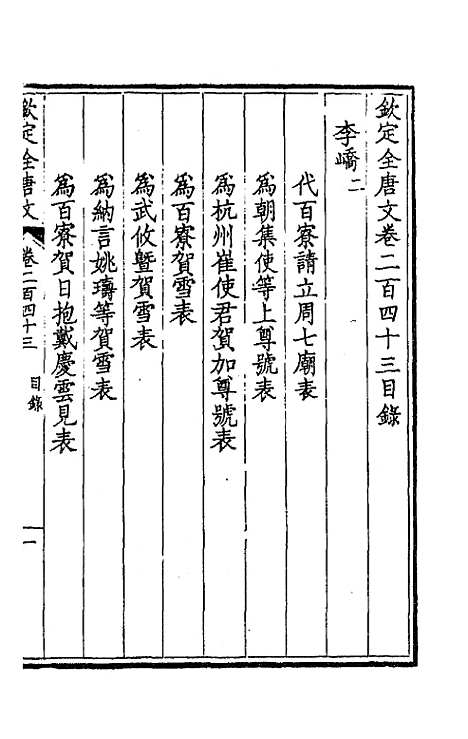 欽定全唐文卷二百四十三目錄
李嶠二
代百寮請立周七廟表
爲朝集使等上尊號表
爲杭州崔使君賀加尊號表
爲百寮賀雪表
爲武攸曁賀雪表
爲納言姚璹等賀雪表
爲百寮賀日抱戴慶雲見表
欽定全唐文 卷二百四十三 目錄 一